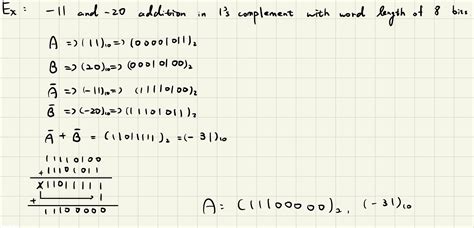 Ex : -11 and -20 addition in 1's complement with word length of 8 bits
A => (11)₁₀ => (00001011)₂
B => (20)₁₀ => (00010100)₂
Ā => (-11)₁₀ => (11110100)₂
B̄ => (-20)₁₀ => (11101011)₂
Ā + B̄ = (11011111)₂ = (-31)₁₀
11110100
+ 11101011
X 11011111
+ 1
11100000
A: (11100000)₂, (-31)₁₀